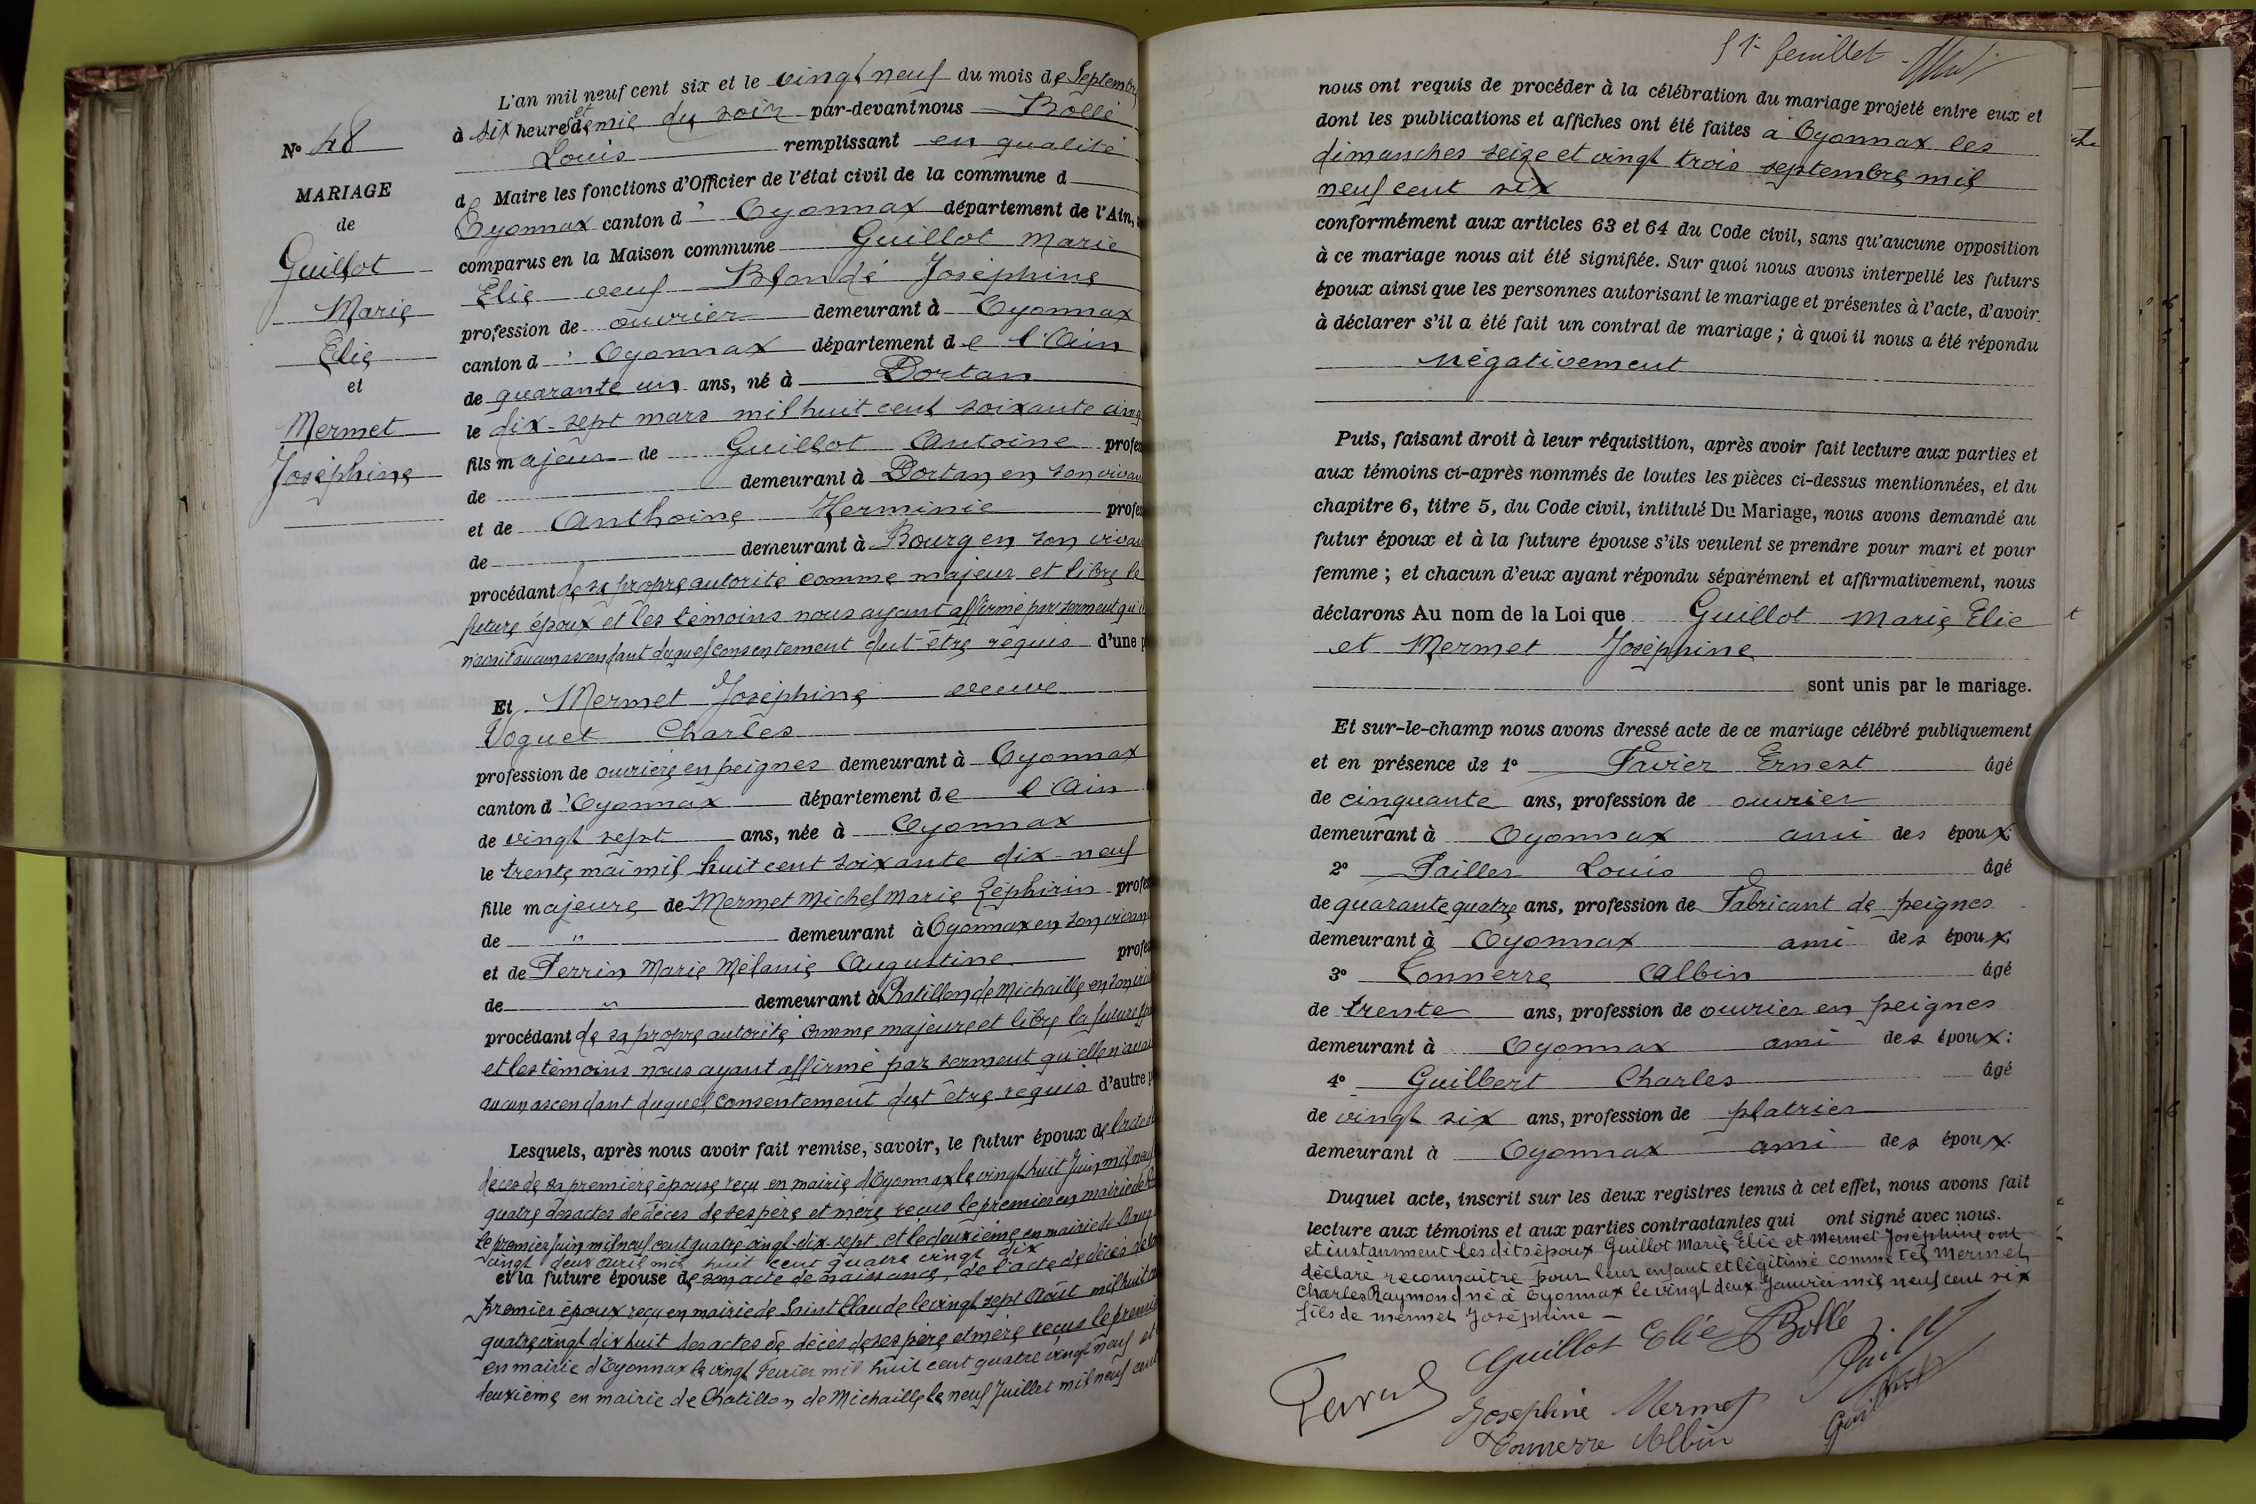 L'an mil neuf cent six et le vingt neuf du mois de Septembre
à six heures et demie du soir par-devant nous Bollé
Louis remplissant en qualité
de Maire les fonctions d'Officier de l'état civil de la commune d
Oyonnax canton d' Oyonnax département de l'Ain,
comparus en la Maison commune Guillot Marie
Elie veuf Blondé Joséphine
profession de ouvrier demeurant à Oyonnax
canton d' Oyonnax département de l'Ain
de quarante un ans, né à Dortan
le dix-sept mars mil huit cent soixante cinq
fils majeur de Guillot Antoine profes
de demeurant à Dortan en son vivan
et de Anthoine Herminie profes
de demeurant à Bourg en son vivan
procédant de sa propre autorité comme majeur et libre le
futur époux et les témoins nous ayant affirmé par serment qu'il
n'avait aucun ascendant duquel consentement dut être requis d'une p
Nº 48
MARIAGE
de
Guillot
Marie
Elie
et
Mermet
Joséphine
Et Mermet Joséphine veuve
Voguet Charles
profession de ouvrière en peignes demeurant à Oyonnax
canton d'Oyonnax département de l'Ain
de vingt sept ans, née à Oyonnax
le trente mai mil huit cent soixante dix-neuf
fille majeure de Mermet Michel Marie Zéphirin profes
de " demeurant à Oyonnax en son vivan
et de Perrin Marie Mélanie Augustine profes
de " demeurant à Chatillon de Michaille en son viv
procédant de sa propre autorité comme majeure et libre la future
et les témoins nous ayant affirmé par serment qu'elle n'avait
aucun ascendant duquel consentement dut être requis d'autre p
Lesquels, après nous avoir fait remise, savoir, le futur époux de l'acte de
décès de sa première épouse reçu en mairie d'Oyonnax le vingt huit Juin mil neuf
quatre des actes de décès de ses père et mère reçus le premier en mairie de
le premier Juin mil neuf cent quatre vingt-dix-sept et le deuxième en mairie de Bourg
vingt deux avril mil huit cent quatre vingt dix
et la future épouse de son acte de naissance, de l'acte de décès de
premier époux reçu en mairie de Saint Claude le vingt sept Août mil huit c
quatre vingt dix huit des actes de décès de ses père et mère reçus le premie
en mairie d'Oyonnax le vingt Février mil huit cent quatre vingt neuf et
deuxième en mairie de Chatillon de Michaille le neuf Juillet mil neuf cent
51e feuillet
nous ont requis de procéder à la célébration du mariage projeté entre eux et
dont les publications et affiches ont été faites à Oyonnax les
dimanches seize et vingt trois septembre mil
neuf cent six
conformément aux articles 63 et 64 du Code civil, sans qu'aucune opposition
à ce mariage nous ait été signifiée. Sur quoi nous avons interpellé les futurs
époux ainsi que les personnes autorisant le mariage et présentes à l'acte, d'avoir
à déclarer s'il a été fait un contrat de mariage ; à quoi il nous a été répondu
négativement
Puis, faisant droit à leur réquisition, après avoir fait lecture aux parties et
aux témoins ci-après nommés de toutes les pièces ci-dessus mentionnées, et du
chapitre 6, titre 5, du Code civil, intitulé Du Mariage, nous avons demandé au
futur époux et à la future épouse s'ils veulent se prendre pour mari et pour
femme ; et chacun d'eux ayant répondu séparément et affirmativement, nous
déclarons Au nom de la Loi que Guillot Marie Elie
et Mermet Joséphine
sont unis par le mariage.
Et sur-le-champ nous avons dressé acte de ce mariage célébré publiquement
et en présence de 1º Favier Ernest âgé
de cinquante ans, profession de ouvrier
demeurant à Oyonnax ami des époux;
2º Pailler Louis âgé
de quarante quatre ans, profession de Fabricant de peignes
demeurant à Oyonnax ami des époux;
3º Tonnerre Albin âgé
de trente ans, profession de ouvrier en peignes
demeurant à Oyonnax ami des époux;
4º Guilbert Charles âgé
de vingt six ans, profession de platrier
demeurant à Oyonnax ami des époux.
Duquel acte, inscrit sur les deux registres tenus à cet effet, nous avons fait
lecture aux témoins et aux parties contractantes qui ont signé avec nous.
et instamment les dits époux Guillot Marie Elie et Mermet Joséphine ont
déclaré reconnaitre pour leur enfant et légitimé comme tel Mermet
Charles Raymond né à Oyonnax le vingt deux Janvier mil neuf cent six
fils de mermet Joséphine
Guillot Elie Bollé
Joséphine Mermet
Tonnerre Albin